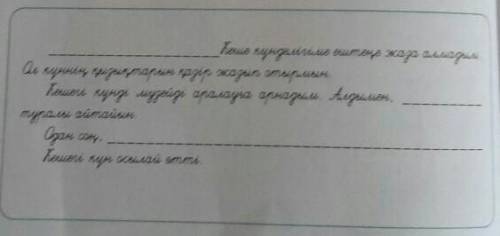 Кеше күнделігіме ештеңе жаза алмадым.
Ол күннің қызықтарын қазір жазып отырмын.
Кешегі күнді музейді аралауға арнадым. Алдымен,
туралы айтайын.
Одан соң,
Кешегі күн осылай өтті.